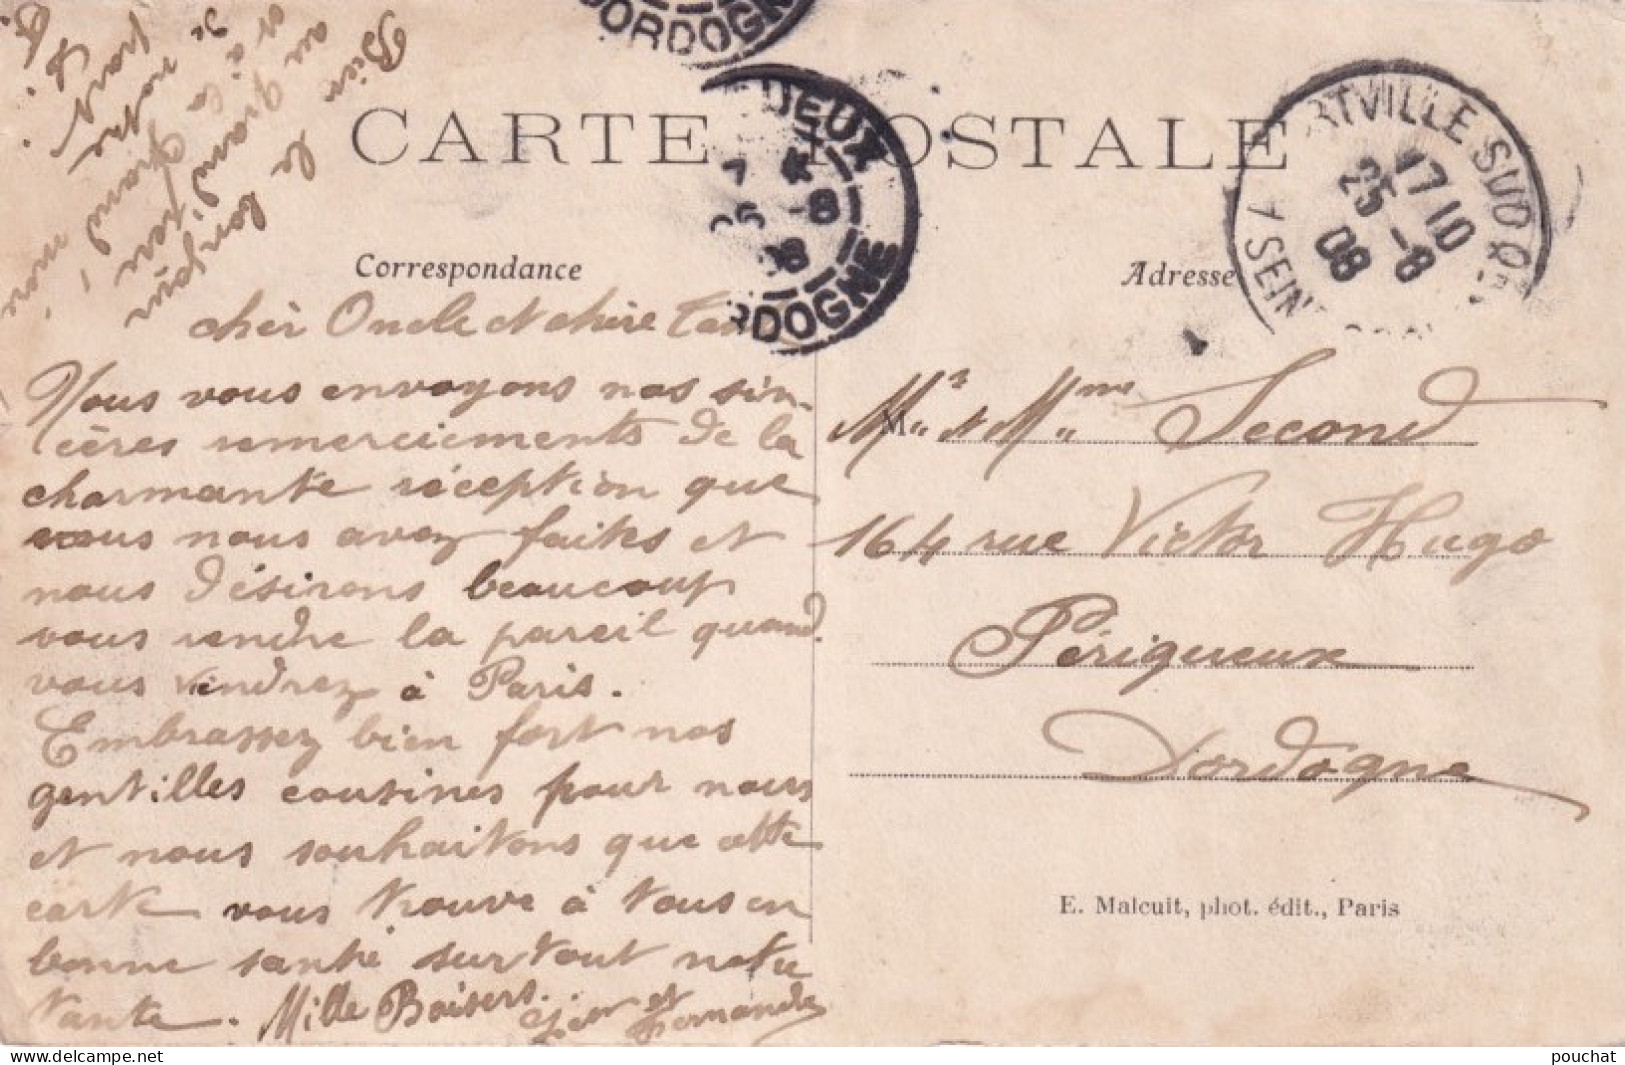 CARTE POSTALE
Correspondance
Adresse
DORDOGNE
DEUX
26 -8
08
DORDOGNE
RTVILLE SUD
17 10
25 -8
08
SEINE
Bien le bonjour
au grand'
à la
quand
notre
Cher Oncle et chère Tan
Nous vous envoyons nos sin-
cères remerciements de la
charmante réception que
vous nous avez faites et
nous désirons beaucoup
vous rendre la pareil quand
vous viendrez à Paris.
Embrassez bien fort nos
gentilles cousines pour nous
et nous souhaitons que cette
carte vous trouve à tous en
bonne santé surtout notre
tante. Mille Baisers.
et Fernande
Mr et Mme Second
164 rue Victor Hugo
Périgueux
Dordogne
E. Malcuit, phot. édit., Paris
pouchat